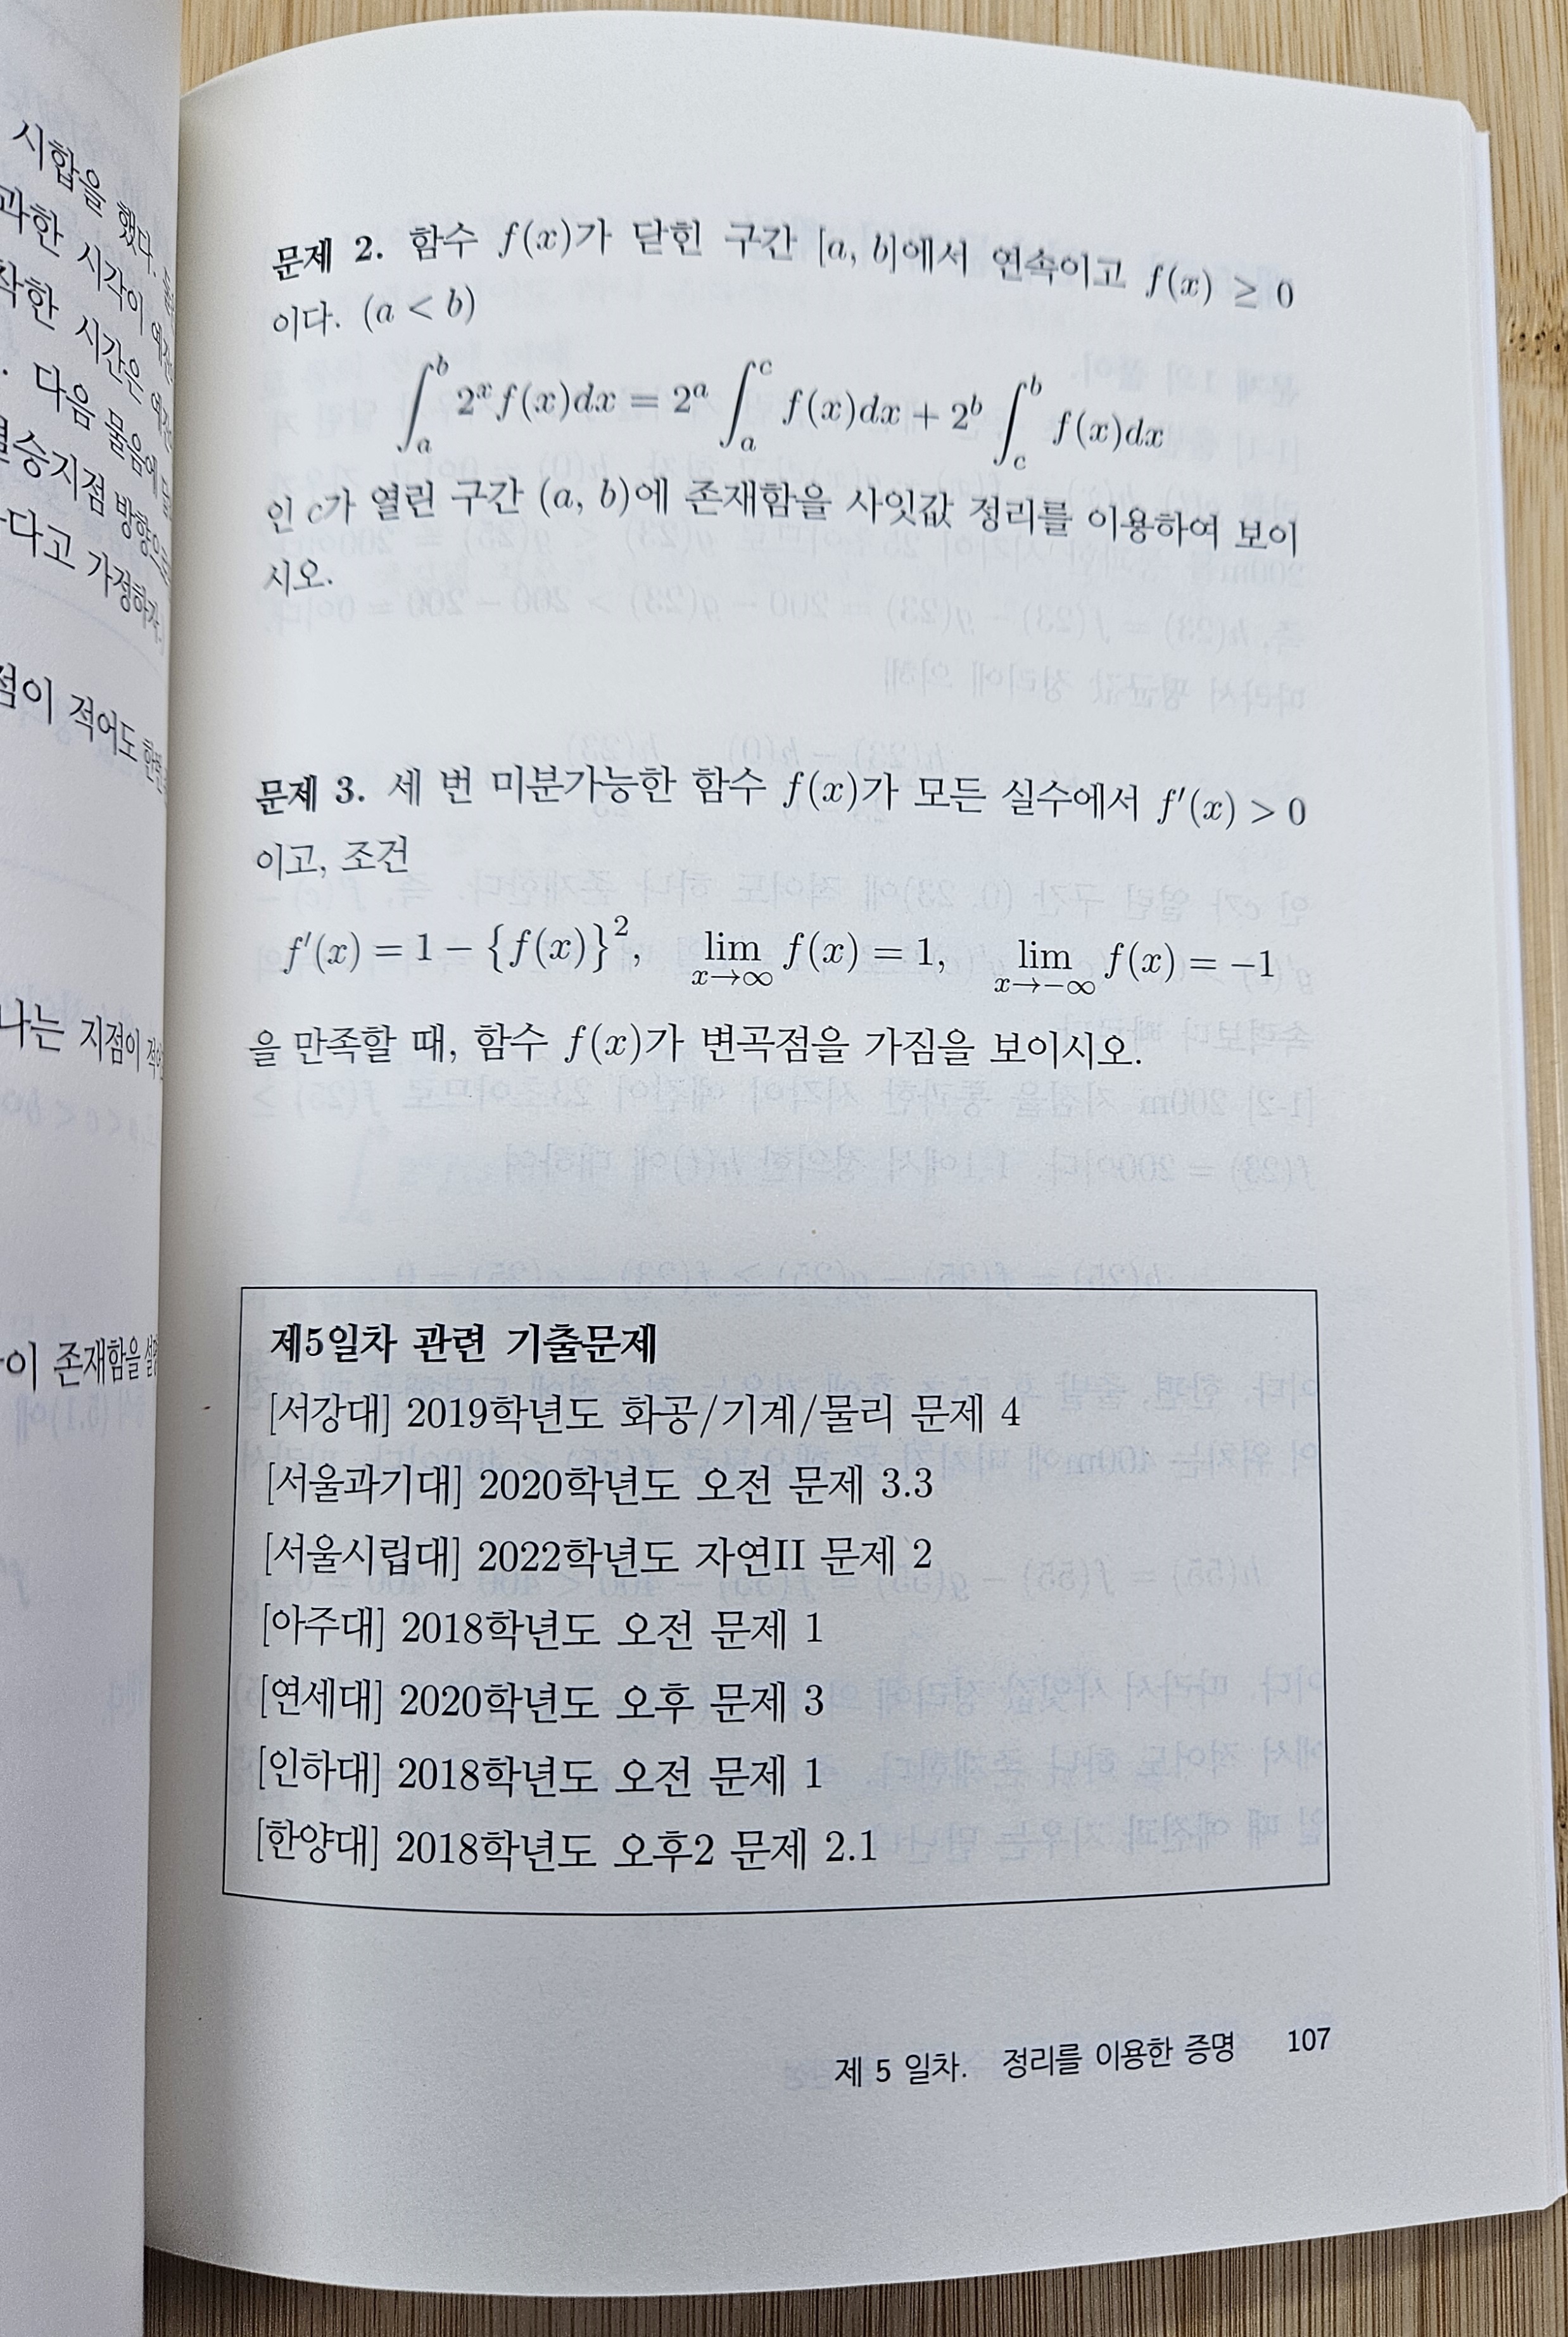 시합을 했다.
과한 시각이
착한 시간은
다음 물음에
결승지점 방향으로
다고 가정하자.
점이 적어도
나는 지점이
이 존재함을
문제 2. 함수 f(x)가 닫힌 구간 [a, b]에서 연속이고 f(x) ≥ 0
이다. (a < b)
∫_a^b 2^x f(x)dx = 2^a ∫_a^c f(x)dx + 2^b ∫_c^b f(x)dx
인 c가 열린 구간 (a, b)에 존재함을 사잇값 정리를 이용하여 보이
시오.
문제 3. 세 번 미분가능한 함수 f(x)가 모든 실수에서 f′(x) > 0
이고, 조건
f′(x) = 1 − {f(x)}², lim_{x→∞} f(x) = 1, lim_{x→−∞} f(x) = −1
을 만족할 때, 함수 f(x)가 변곡점을 가짐을 보이시오.
제5일차 관련 기출문제
[서강대] 2019학년도 화공/기계/물리 문제 4
[서울과기대] 2020학년도 오전 문제 3.3
[서울시립대] 2022학년도 자연II 문제 2
[아주대] 2018학년도 오전 문제 1
[연세대] 2020학년도 오후 문제 3
[인하대] 2018학년도 오전 문제 1
[한양대] 2018학년도 오후2 문제 2.1
제 5 일차. 정리를 이용한 증명 107